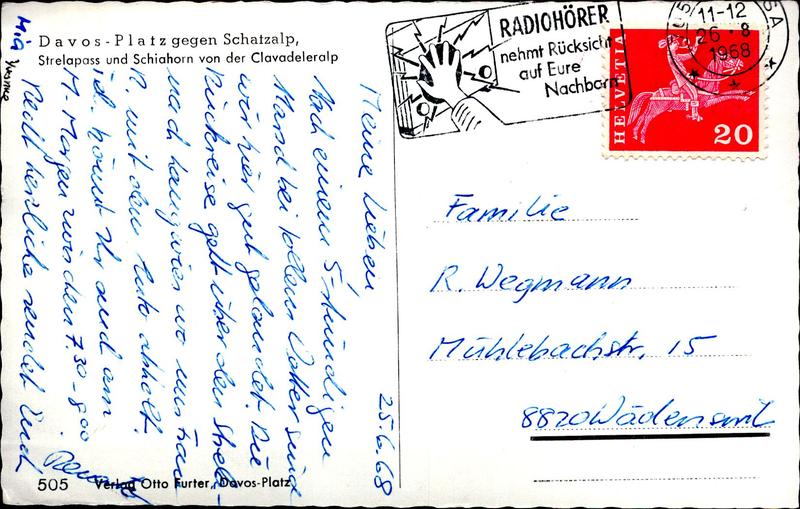 Davos-Platz gegen Schatzalp,
Strelapass und Schiahorn von der Clavadeleralp
25.6.68
Meine Lieben
Nach einem 5-stündigen
Marsch bei tollem Wetter sind
wir hier gut gelandet. Die
Rückreise geht über den Strela-
nach Langwies wo uns Frau
R. mit dem Auto abholt.
könnt Ihr uns am
M-Morgen zwischen 7.30-8.00
Recht herzliche sendet Euch
Mia
Yvonne
505 Verlag Otto Furter, Davos-Platz
RADIOHÖRER
nehmt Rücksicht
auf Eure
Nachbarn
11-12
26.-8
1968
HELVETIA
20
Familie
R. Wegmann
Mühlebachstr. 15
8820 Wädenswil